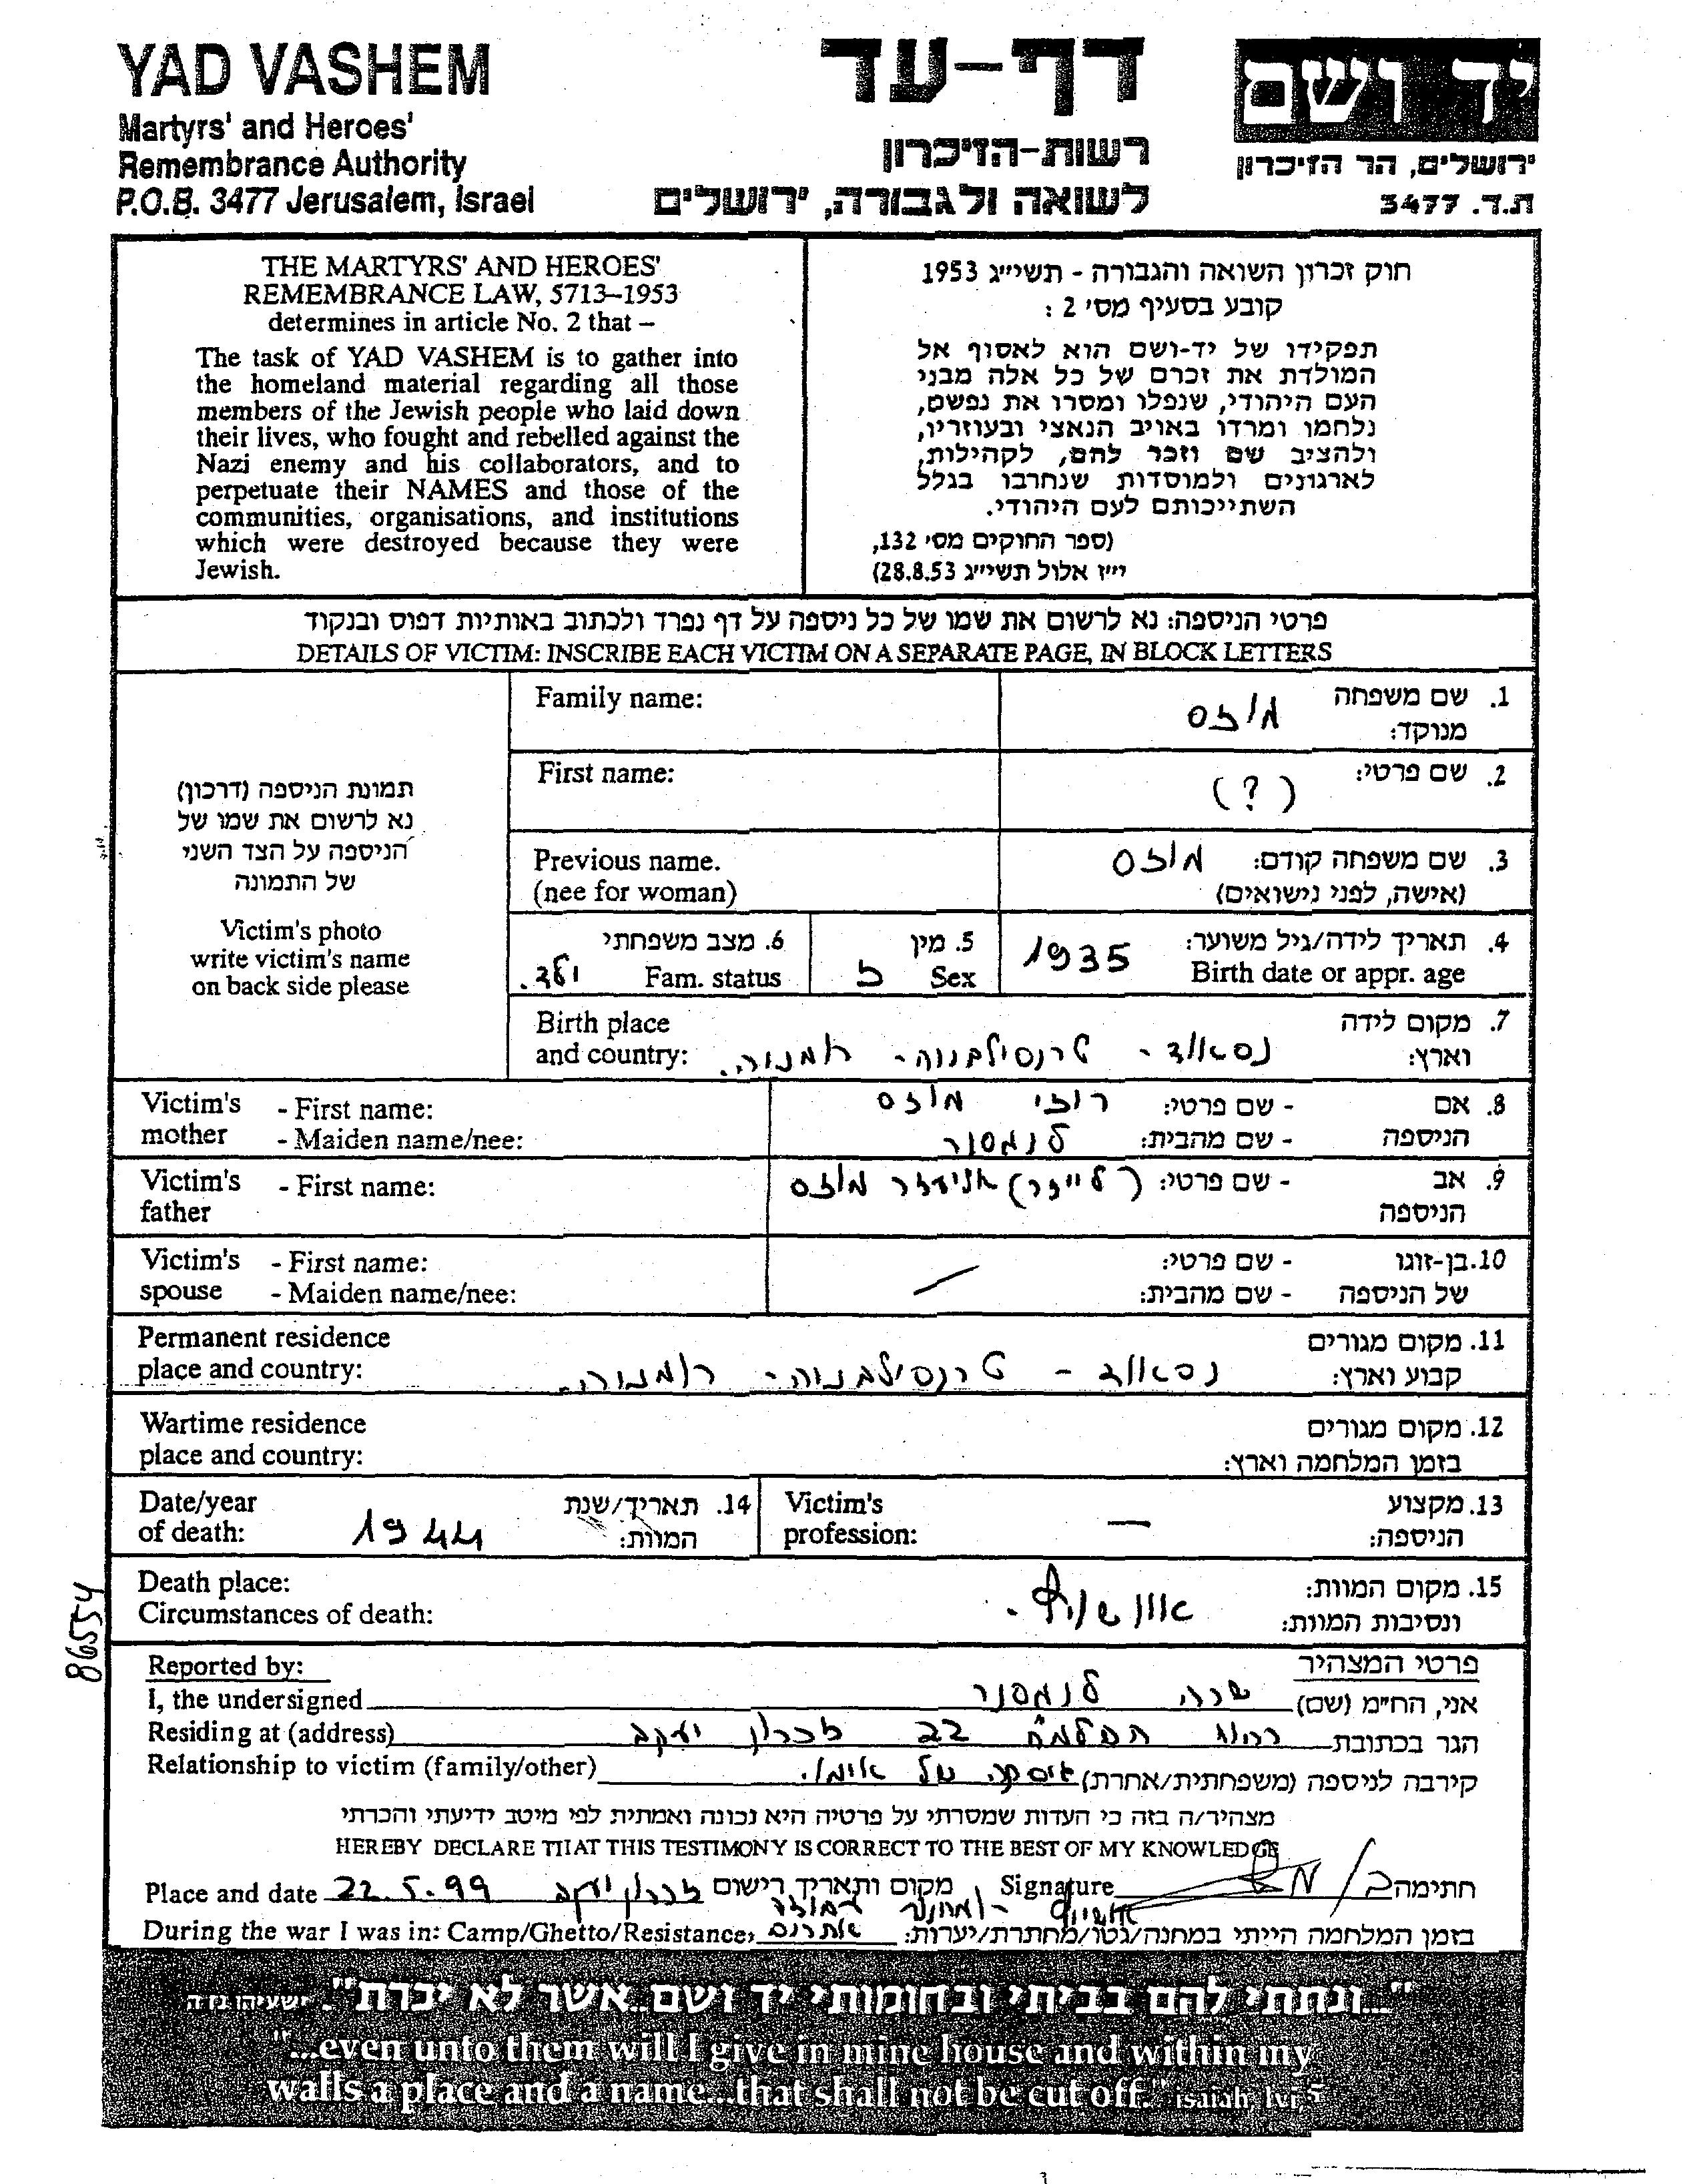 YAD VASHEM
Martyrs' and Heroes'
Remembrance Authority
P.O.B. 3477 Jerusalem, Israel
דף-עד
רשות-הזיכרון
לשואה ולגבורה, ירושלים
יד ושם
ירושלים, הר הזיכרון
ת.ד. 3477
THE MARTYRS' AND HEROES'
REMEMBRANCE LAW, 5713–1953
determines in article No. 2 that –
The task of YAD VASHEM is to gather into
the homeland material regarding all those
members of the Jewish people who laid down
their lives, who fought and rebelled against the
Nazi enemy and his collaborators, and to
perpetuate their NAMES and those of the
communities, organisations, and institutions
which were destroyed because they were
Jewish.
חוק זכרון השואה והגבורה - תשי״ג 1953
קובע בסעיף מס׳ 2 :
תפקידו של יד-ושם הוא לאסוף אל
המולדת את זכרם של כל אלה מבני
העם היהודי, שנפלו ומסרו את נפשם,
נלחמו ומרדו באויב הנאצי ובעוזריו,
ולהציב שם וזכר להם, לקהילות,
לארגונים ולמוסדות שנחרבו בגלל
השתייכותם לעם היהודי.
(ספר החוקים מס׳ 132,
י״ז אלול תשי״ג 28.8.53)
פרטי הניספה: נא לרשום את שמו של כל ניספה על דף נפרד ולכתוב באותיות דפוס ובנקוד
DETAILS OF VICTIM: INSCRIBE EACH VICTIM ON A SEPARATE PAGE, IN BLOCK LETTERS
תמונת הניספה (דרכון)
נא לרשום את שמו של
הניספה על הצד השני
של התמונה
Victim's photo
write victim's name
on back side please
Family name: מוזס 1. שם משפחה
מנוקד:
First name: (?) 2. שם פרטי:
Previous name. מוזס 3. שם משפחה קודם:
(nee for woman) (אישה, לפני נישואים)
6. מצב משפחתי 5. מין 1935 4. תאריך לידה/גיל משוער:
ילד. Fam. status ז Sex Birth date or appr. age
Birth place 7. מקום לידה
and country: נסאוד - טרנסילבניה - רומניה. וארץ:
Victim's - First name: רוזי מוזס - שם פרטי: 8. אם
mother - Maiden name/nee: לנמסנר - שם מהבית: הניספה
Victim's - First name: (לייזר) אליעזר מוזס - שם פרטי: 9. אב
father הניספה
Victim's - First name: - שם פרטי: 10. בן-זוגו
spouse - Maiden name/nee: - שם מהבית: של הניספה
Permanent residence 11. מקום מגורים
place and country: נסאוד - טרנסילבניה - רומניה. קבוע וארץ:
Wartime residence 12. מקום מגורים
place and country: בזמן המלחמה וארץ:
Date/year 14. תאריך/שנת Victim's 13. מקצוע
of death: 1944 המוות: profession: — הניספה:
Death place: 15. מקום המוות:
Circumstances of death: אושוויץ. ונסיבות המוות:
86554
Reported by: פרטי המצהיר
I, the undersigned שרה אני, הח״מ (שם)
Residing at (address) רחוב הפלמ״ח 22 זכרון יעקב הגר בכתובת
Relationship to victim (family/other) של אימו. קירבה לניספה (משפחתית/אחרת)
מצהיר/ה בזה כי העדות שמסרתי על פרטיה היא נכונה ואמתית לפי מיטב ידיעתי והכרתי
HEREBY DECLARE THAT THIS TESTIMONY IS CORRECT TO THE BEST OF MY KNOWLEDGE
Place and date 22.5.99 זכרון יעקב מקום ותאריך רישום Signature חתימה
During the war I was in: Camp/Ghetto/Resistance: בזמן המלחמה הייתי במחנה/גטו/מחתרת/יערות:
"...ונתתי להם בביתי ובחומותי יד ושם..אשר לא יכרת". ישעיהו נו ה
"...even unto them will I give in mine house and within my
walls a place and a name...that shall not be cut off." isaiah, lvi 5